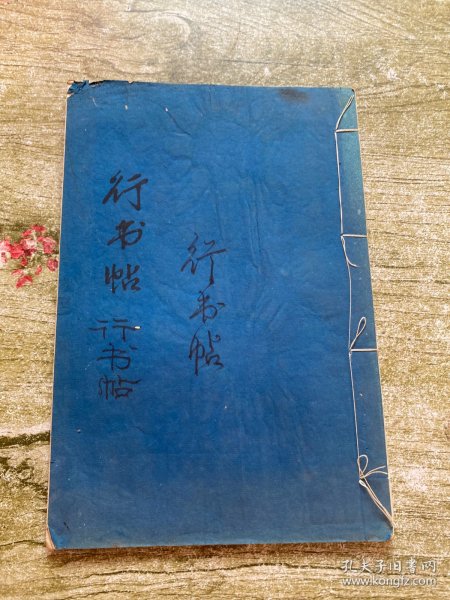 行书帖
行书帖
行书帖
孔夫子旧书网
www.kongfz.com